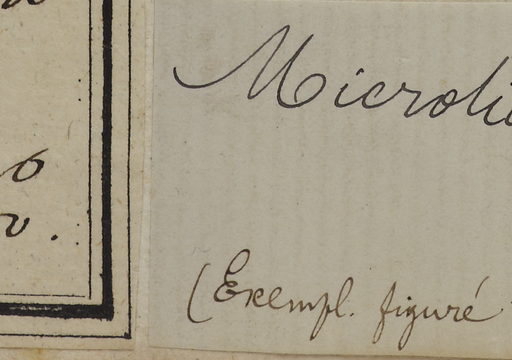 Microli
(Exempl. figuré